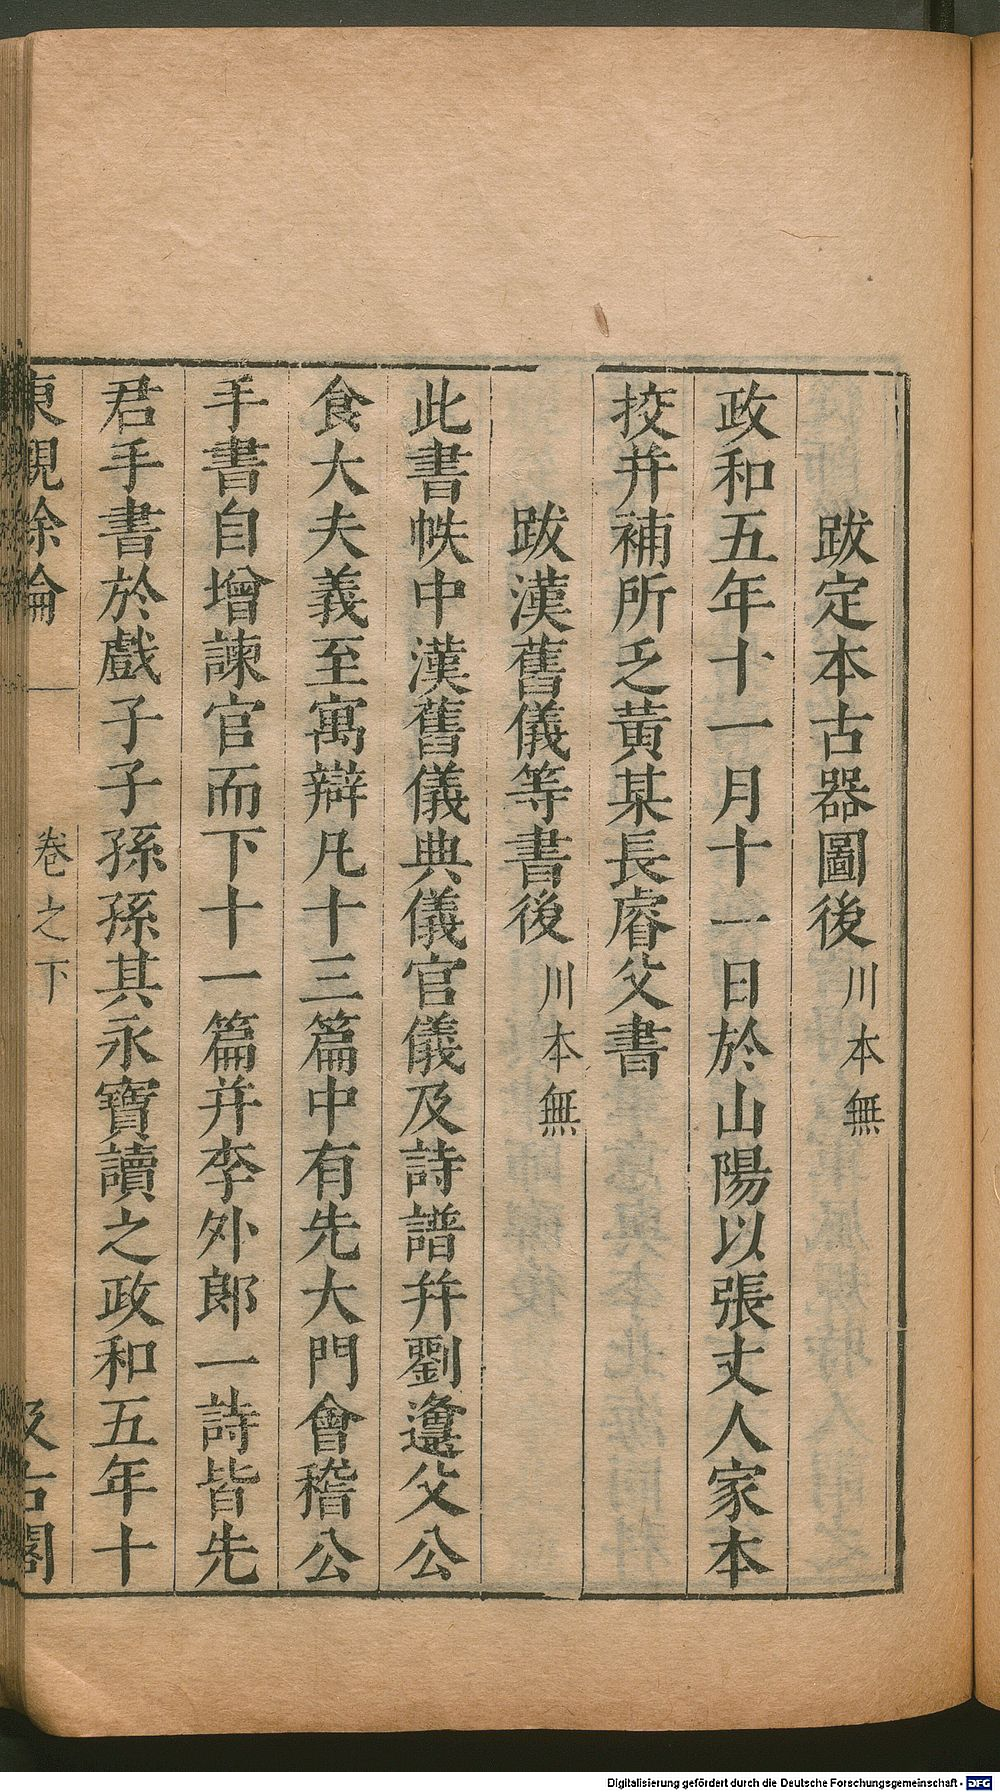 跋定本古器圖後川本無
政和五年十一月十一日於山陽以張丈人家本
挍并補所乏黃某長睿父書
跋漢舊儀等書後川本無
此書帙中漢舊儀典儀官儀及詩譜并劉邍父公
食大夫義至寓辯凡十三篇中有先大門會稽公
手書自增諫官而下十一篇并李外郎一詩皆先
君手書於戲子子孫孫其永寶讀之政和五年十
東觀餘論 卷之下 汲古閣
Digitalisierung gefördert durch die Deutsche Forschungsgemeinschaft - DFG